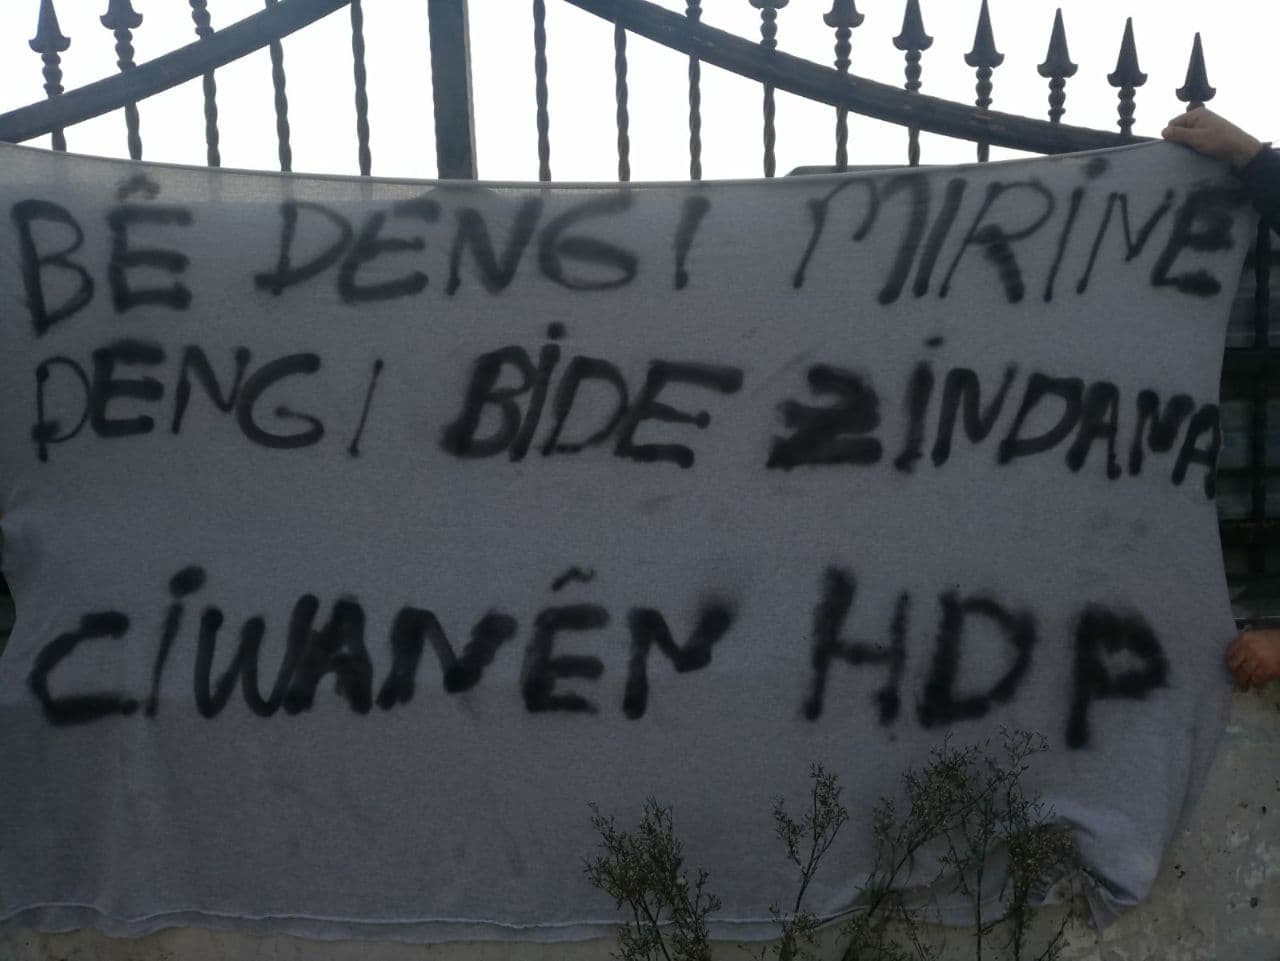 BÊ DENGI MIRINE
DENGI BİDE ZİNDANA
CİWANÊN HDP